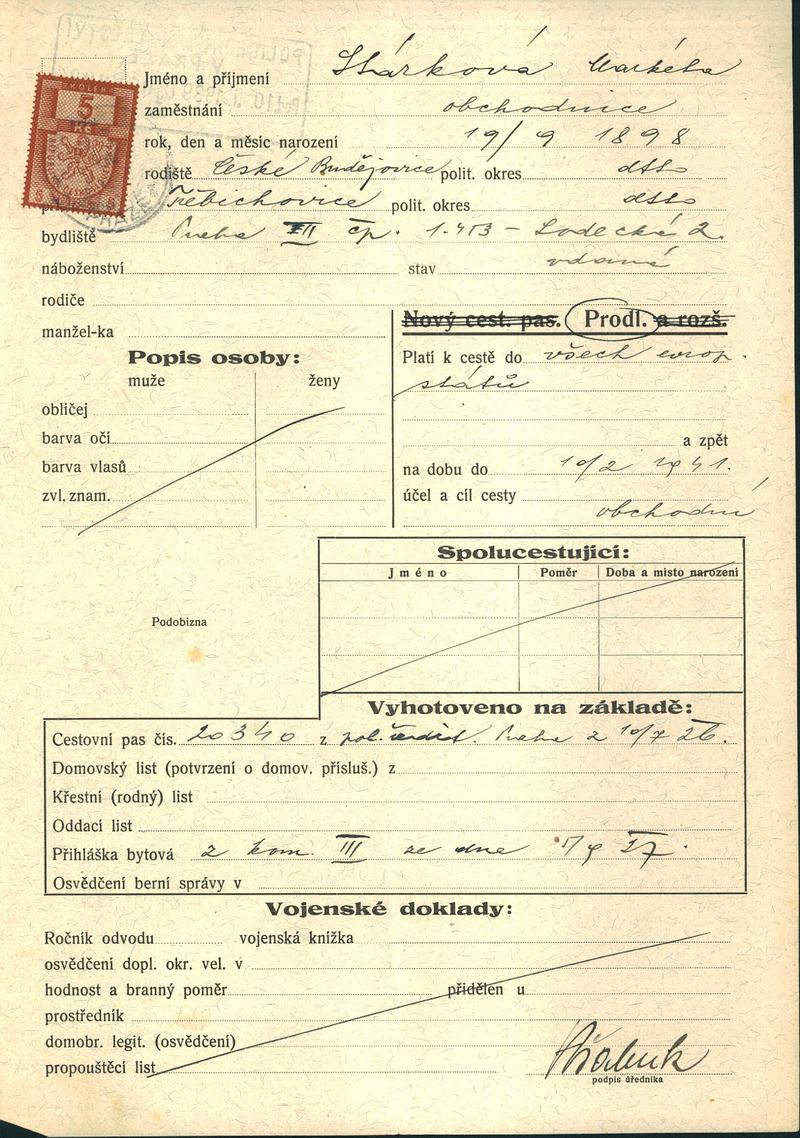 KOLEK
5
Kč
Jméno a příjmení Stárková Markéta
zaměstnání obchodnice
rok, den a měsíc narození 19/9 1898
rodiště České Budějovice polit. okres dtto
Třebichovice polit. okres dtto
bydliště Praha VII čp. 1.413 – Lodecká 2.
náboženství stav vdaná
rodiče
manžel-ka
Nový cest. pas. Prodl. a rozš.
Platí k cestě do všech evrop.
států
a zpět
na dobu do 10/2 1941.
účel a cíl cesty
obchodní
Popis osoby:
muže ženy
obličej
barva očí
barva vlasů
zvl. znam.
Podobizna
Spolucestující:
Jméno Poměr Doba a místo narození
Vyhotoveno na základě:
Cestovní pas čís. 20340 z pol. ředit. Praha z 10/7 26.
Domovský list (potvrzení o domov. přísluš.) z
Křestní (rodný) list
Oddací list
Přihláška bytová z kom. III ze dne
Osvědčení berní správy v
Vojenské doklady:
Ročník odvodu vojenská knížka
osvědčení dopl. okr. vel. v
hodnost a branný poměr přidělen u
prostředník
domobr. legit. (osvědčení)
propouštěcí list
podpis úředníka